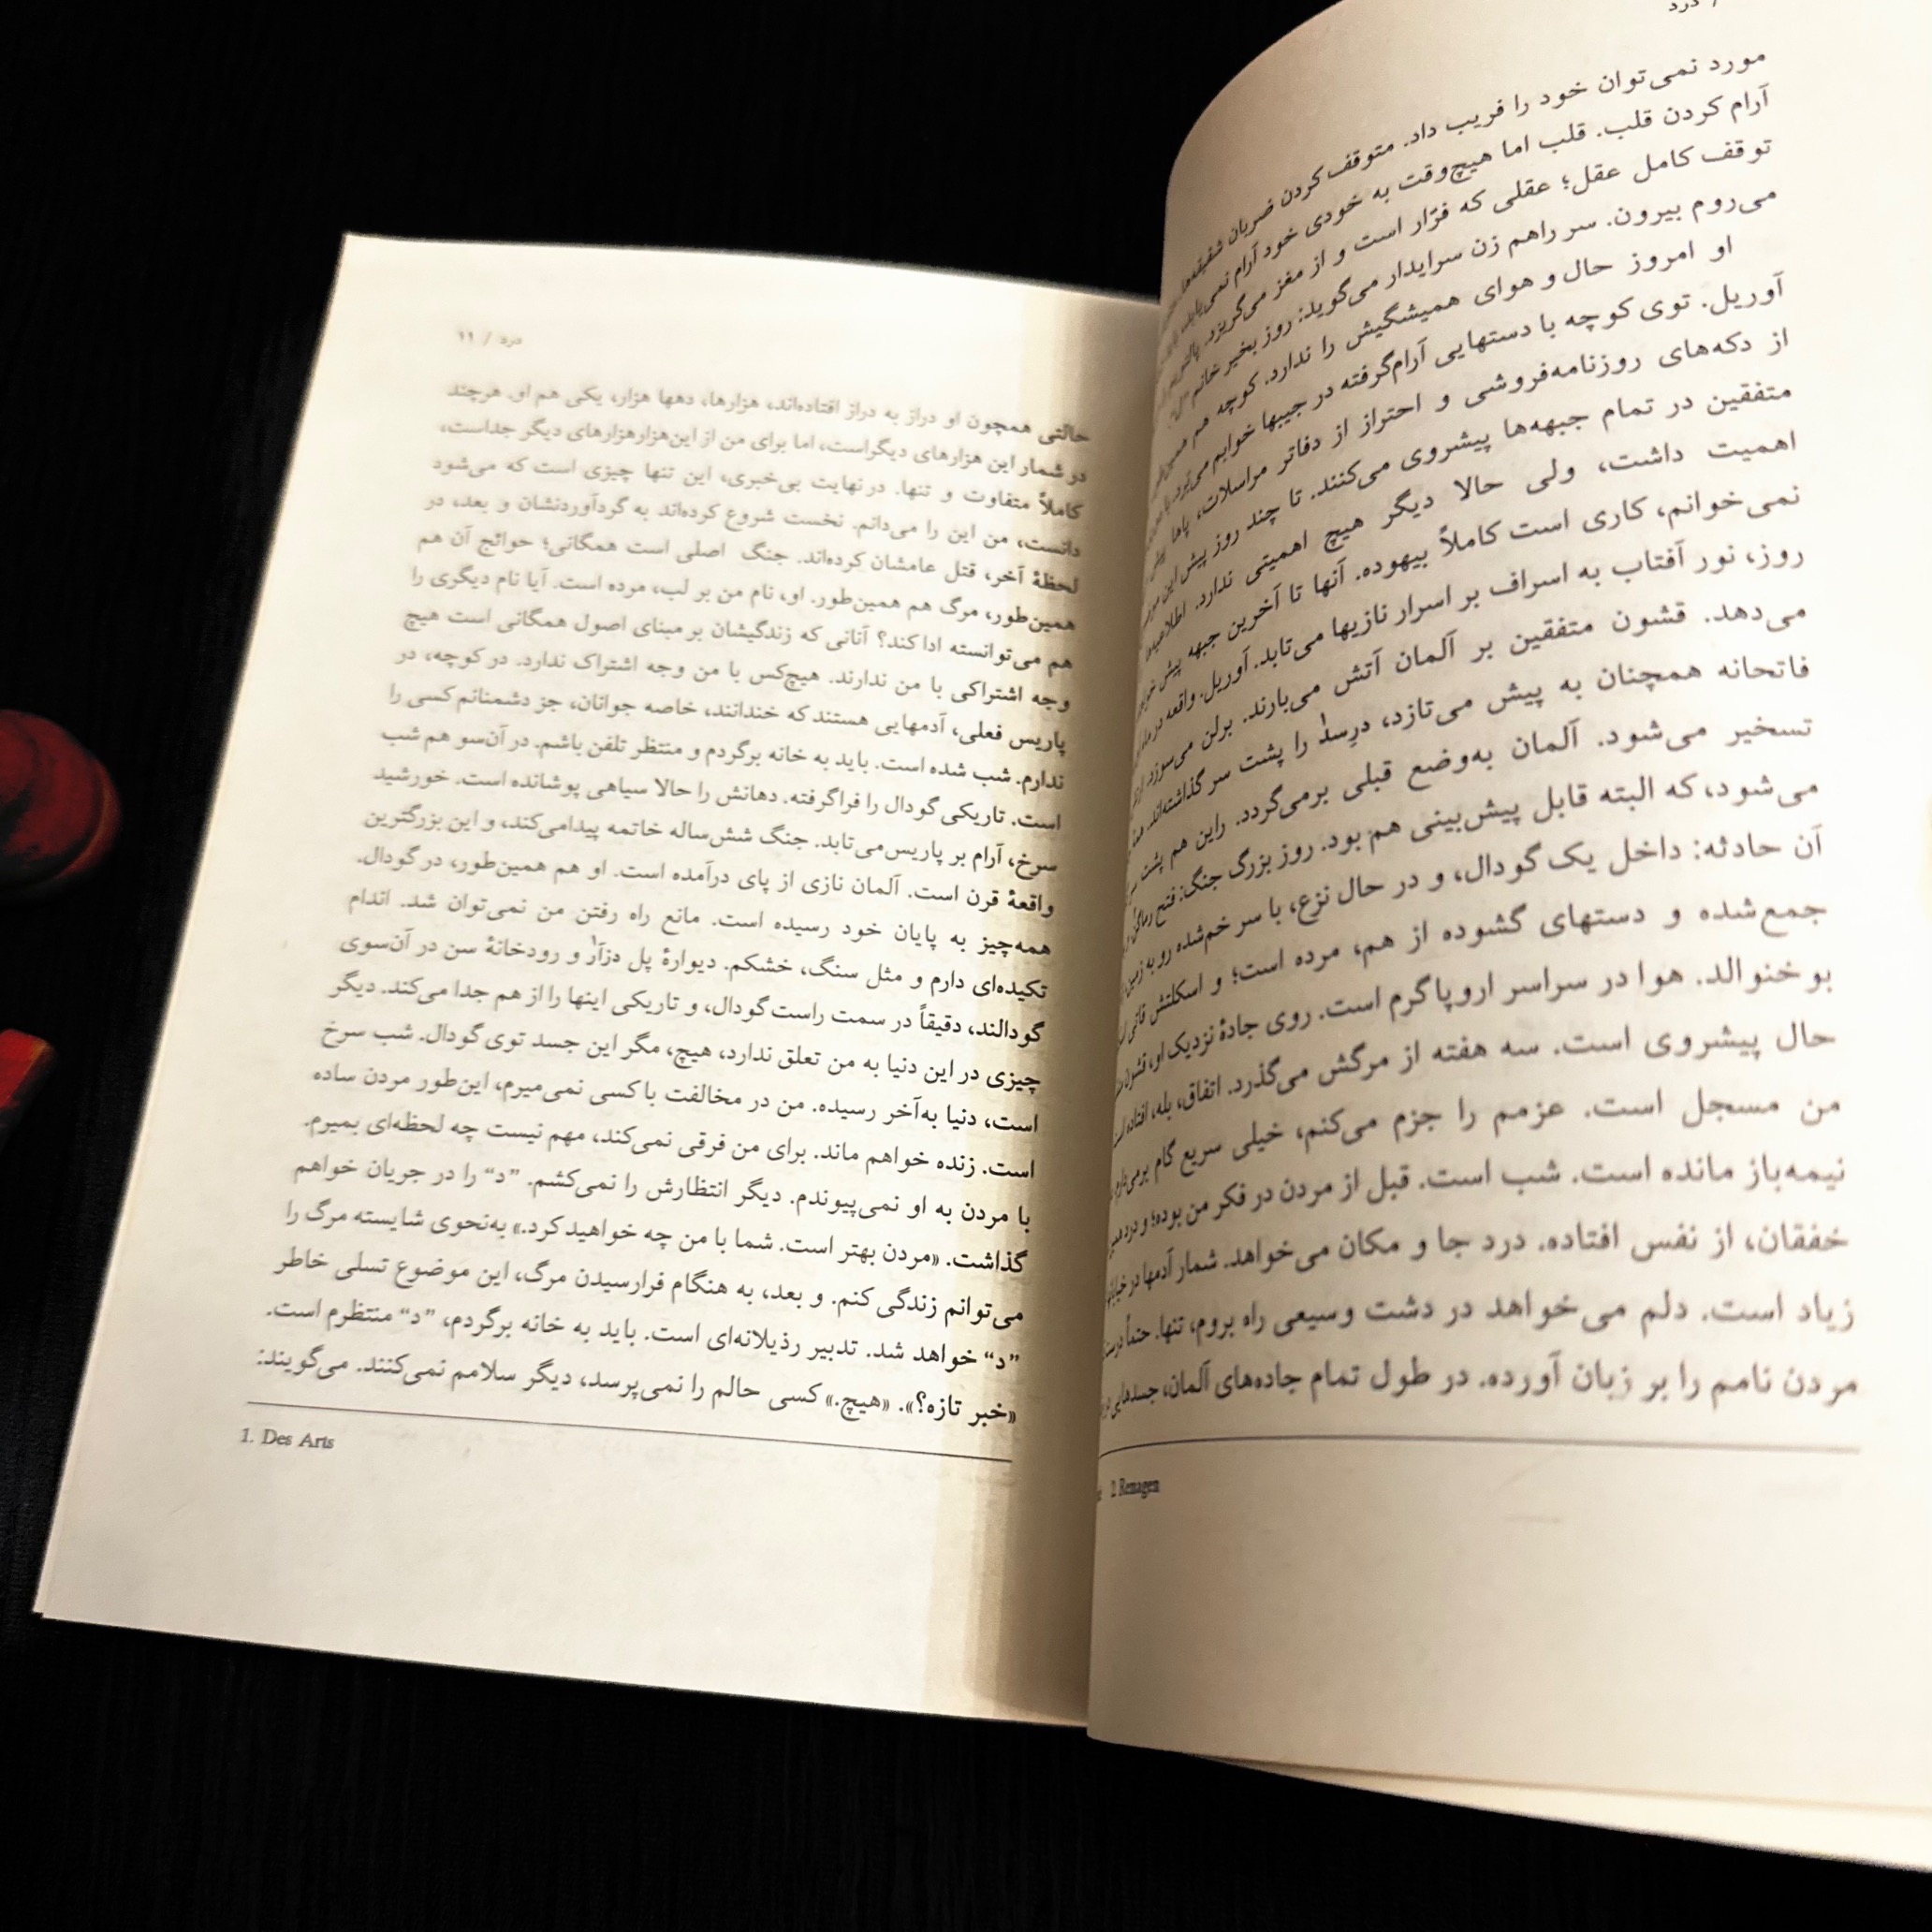 / درد
مورد نمی‌توان خود را فریب داد. متوقف کردن ضربان شقیقه‌ها
آرام کردن قلب. قلب اما هیچ‌وقت به خودی خود آرام نمی‌یابد،
توقف کامل عقل؛ عقلی که فرّار است و از مغز می‌گریزد.
می‌روم بیرون. سر راهم زن سرایدار می‌گوید: روز بخیر خانم "ل".
او امروز حال و هوای همیشگیش را ندارد. کوچه هم
آوریل. توی کوچه با دستهایی آرام‌گرفته در جیبها خوابم می‌برد.
از دکه‌های روزنامه‌فروشی و احتراز از دفاتر مراسلات، پاها پیش
متفقین در تمام جبهه‌ها پیشروی می‌کنند. تا چند روز پیش این
اهمیت داشت، ولی حالا دیگر هیچ اهمیتی ندارد.
نمی‌خوانم، کاری است کاملاً بیهوده. آنها تا آخرین جبهه پیش
روز، نور آفتاب به اسراف بر اسرار نازیها می‌تابد. آوریل. واقعه در
می‌دهد. قشون متفقین بر آلمان آتش می‌بارند. برلن می‌سوزد.
فاتحانه همچنان به پیش می‌تازد، درِسد۱ را پشت سر گذاشته‌اند.
تسخیر می‌شود. آلمان به‌وضع قبلی برمی‌گردد. راین هم پشت سر
می‌شود، که البته قابل پیش‌بینی هم بود. روز بزرگ جنگ: فتح
آن حادثه: داخل یک گودال، و در حال نزع، با سر خم‌شده رو به زمین
جمع‌شده و دستهای گشوده از هم، مرده است؛ و اسکلتش
بوخنوالد. هوا در سراسر اروپا گرم است. روی جادهٔ نزدیک او، قشون
حال پیشروی است. سه هفته از مرگش می‌گذرد. اتفاق، بله، افتاده
من مسجل است. عزمم را جزم می‌کنم، خیلی سریع گام برمی‌دارم
نیمه‌باز مانده است. شب است. قبل از مردن در فکر من بوده؛ و درد
خفقان، از نفس افتاده. درد جا و مکان می‌خواهد. شمار آدمها در
زیاد است. دلم می‌خواهد در دشت وسیعی راه بروم، تنها. حتماً
مردن نامم را بر زبان آورده. در طول تمام جاده‌های آلمان، جسدهایی
2. Remagen
درد / ۱۱
حالتی همچون او دراز به دراز افتاده‌اند، هزارها، دهها هزار، یکی هم او. هرچند
در شمار این هزارهای دیگراست، اما برای من از این‌هزارهزارهای دیگر جداست،
کاملاً متفاوت و تنها. در نهایت بی‌خبری، این تنها چیزی است که می‌شود
دانست، من این را می‌دانم. نخست شروع کرده‌اند به گردآوردنشان و بعد، در
لحظهٔ آخر، قتل عامشان کرده‌اند. جنگ اصلی است همگانی؛ حوائج آن هم
همین‌طور، مرگ هم همین‌طور. او، نام من بر لب، مرده است. آیا نام دیگری را
هم می‌توانسته ادا کند؟ آنانی که زندگیشان بر مبنای اصول همگانی است هیچ
وجه اشتراکی با من ندارند. هیچ‌کس با من وجه اشتراک ندارد. در کوچه، در
پاریس فعلی، آدمهایی هستند که خندانند، خاصه جوانان، جز دشمنانم کسی را
ندارم. شب شده است. باید به خانه برگردم و منتظر تلفن باشم. در آن‌سو هم شب
است. تاریکی گودال را فراگرفته. دهانش را حالا سیاهی پوشانده است. خورشید
سرخ، آرام بر پاریس می‌تابد. جنگ شش‌ساله خاتمه پیدامی‌کند، و این بزرگترین
واقعهٔ قرن است. آلمان نازی از پای درآمده است. او هم همین‌طور، در گودال.
همه‌چیز به پایان خود رسیده است. مانع راه رفتن من نمی‌توان شد. اندام
تکیده‌ای دارم و مثل سنگ، خشکم. دیوارهٔ پل دزآر۱ و رودخانهٔ سن در آن‌سوی
گودالند، دقیقاً در سمت راست گودال، و تاریکی اینها را از هم جدا می‌کند. دیگر
چیزی در این دنیا به من تعلق ندارد، هیچ، مگر این جسد توی گودال. شب سرخ
است، دنیا به‌آخر رسیده. من در مخالفت با کسی نمی‌میرم، این‌طور مردن ساده
است. زنده خواهم ماند. برای من فرقی نمی‌کند، مهم نیست چه لحظه‌ای بمیرم.
با مردن به او نمی‌پیوندم. دیگر انتظارش را نمی‌کشم. "د" را در جریان خواهم
گذاشت. «مردن بهتر است. شما با من چه خواهید کرد.» به‌نحوی شایسته مرگ را
می‌توانم زندگی کنم. و بعد، به هنگام فرارسیدن مرگ، این موضوع تسلی خاطر
"د" خواهد شد. تدبیر رذیلانه‌ای است. باید به خانه برگردم، "د" منتظرم است.
«خبر تازه؟». «هیچ.» کسی حالم را نمی‌پرسد، دیگر سلامم نمی‌کنند. می‌گویند:
1. Des Arts